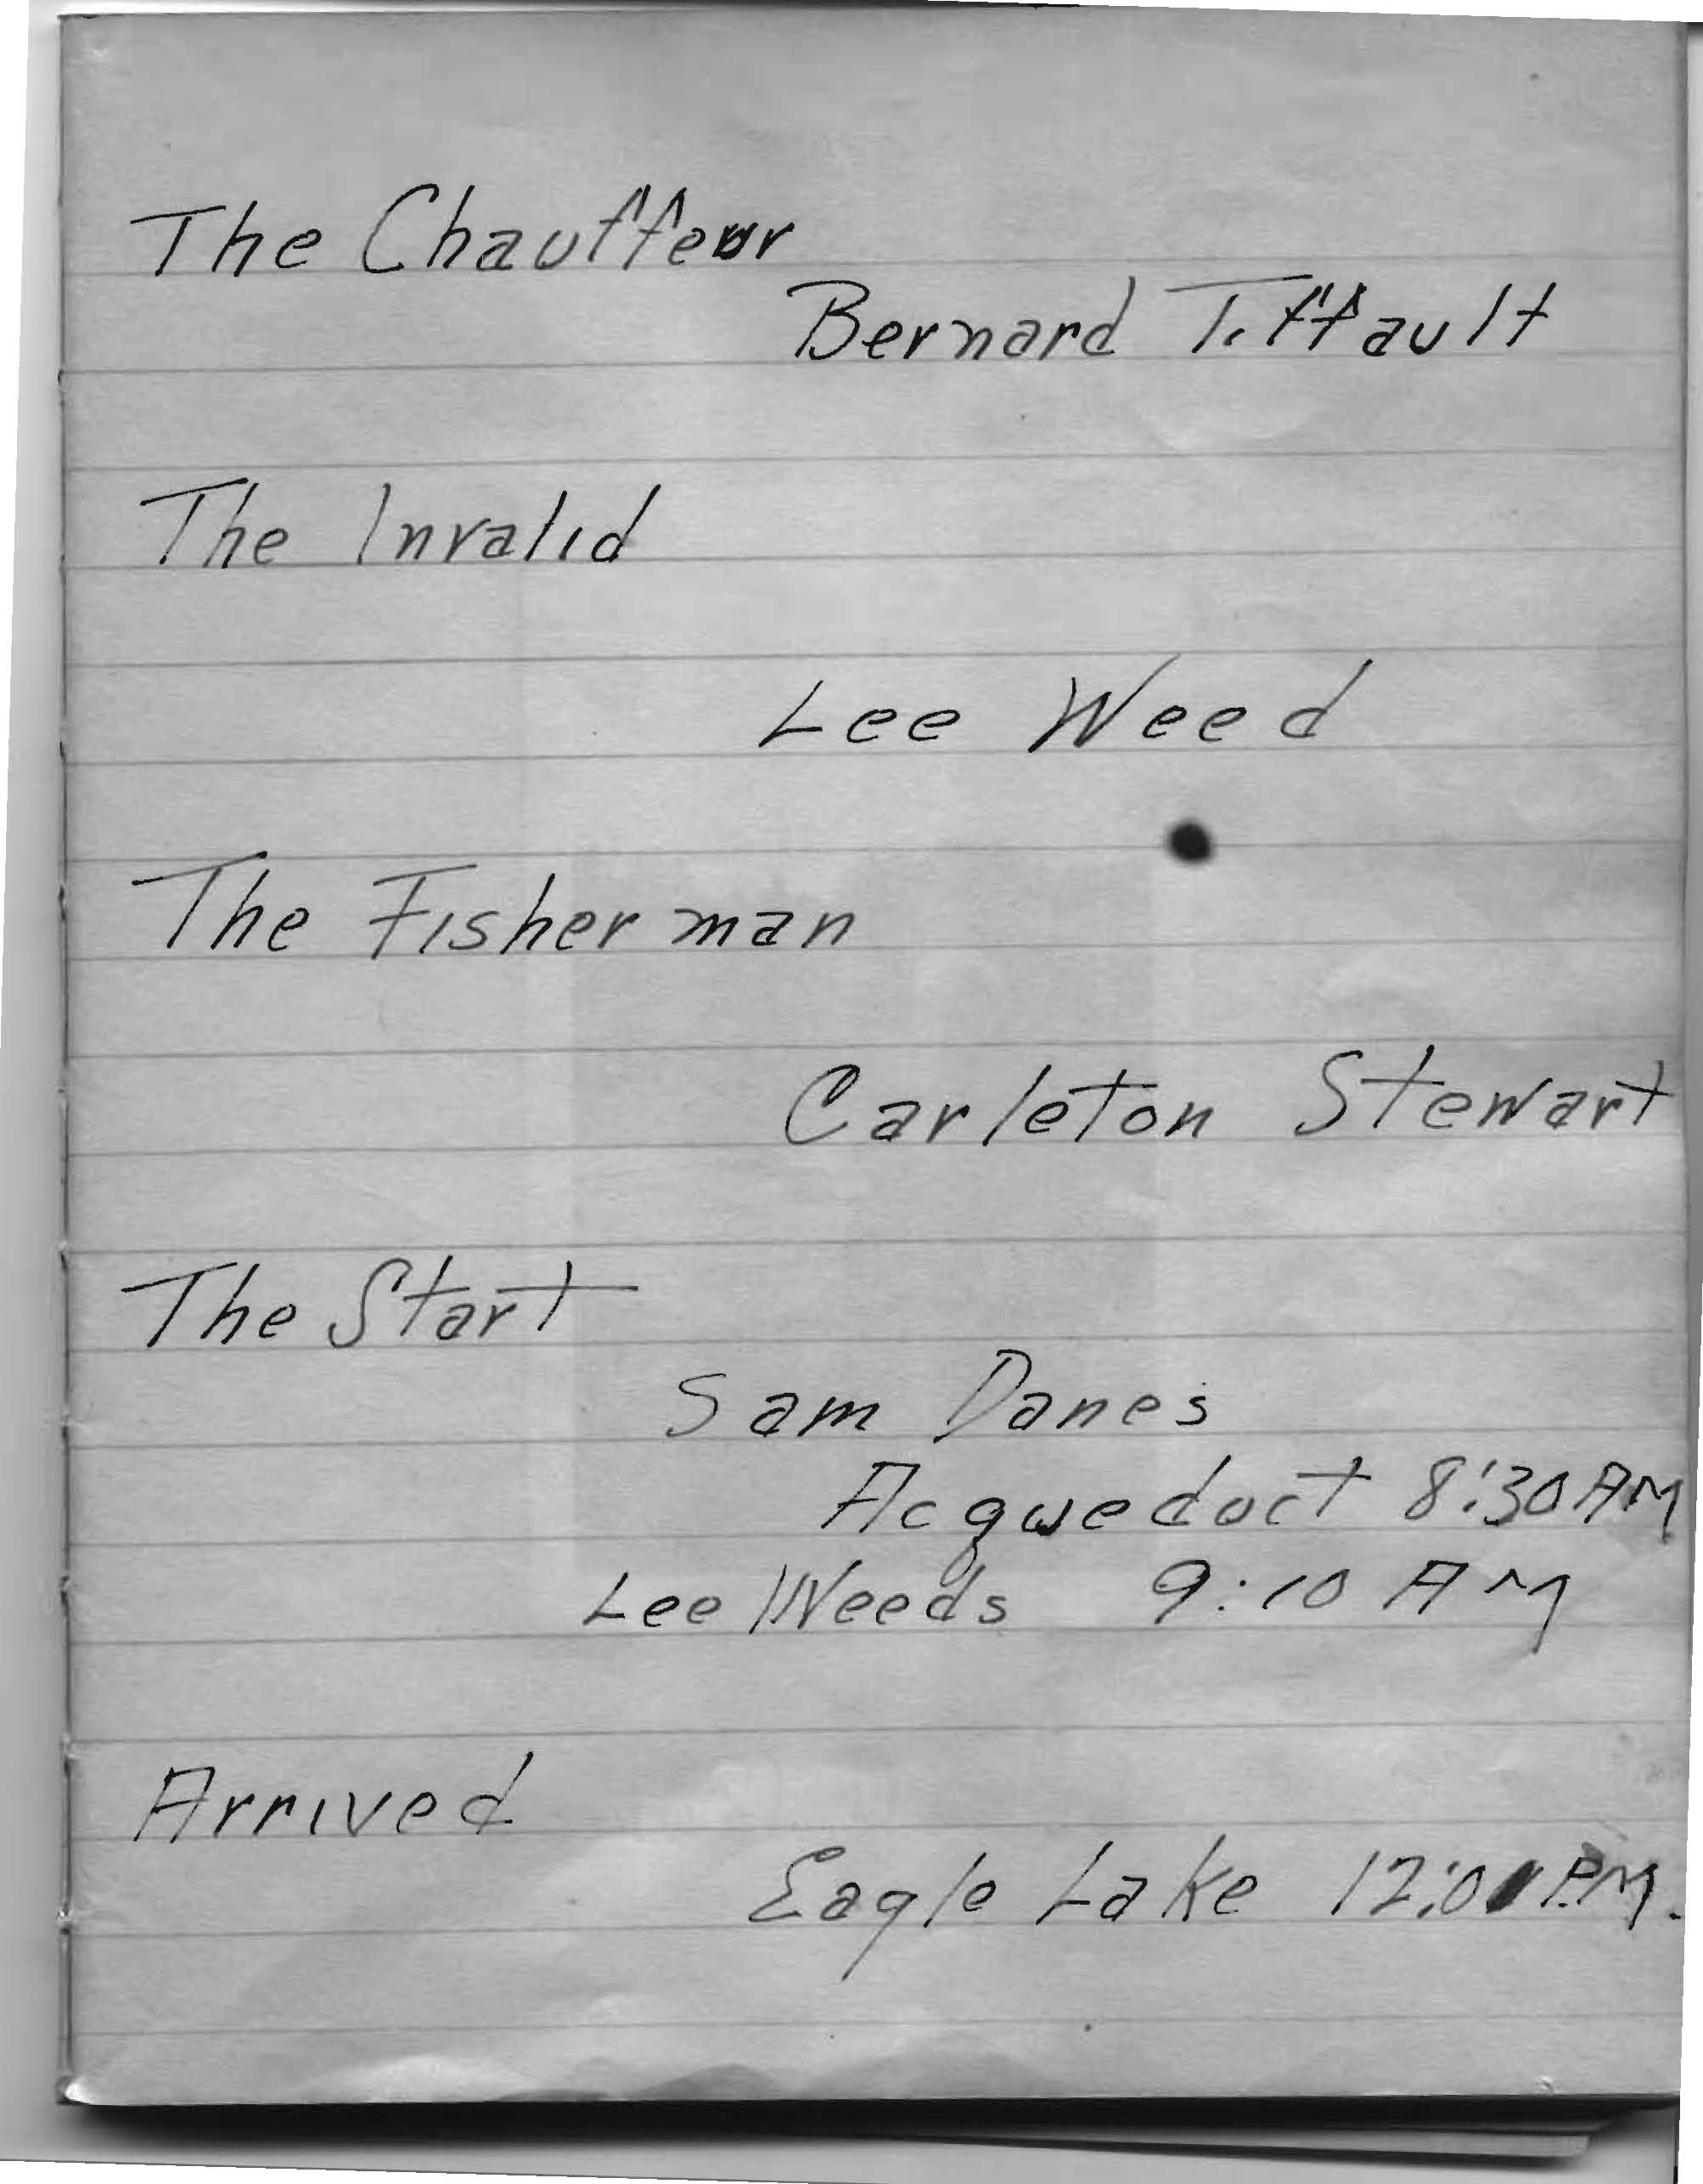 The Chauffeur
Bernard Tiffault
The Invalid
Lee Weed
The Fisherman
Carleton Stewart
The Start
Sam Danes
Acqueduct 8:30 AM
Lee Weeds 9:10 AM
Arrived
Eagle Lake PM.